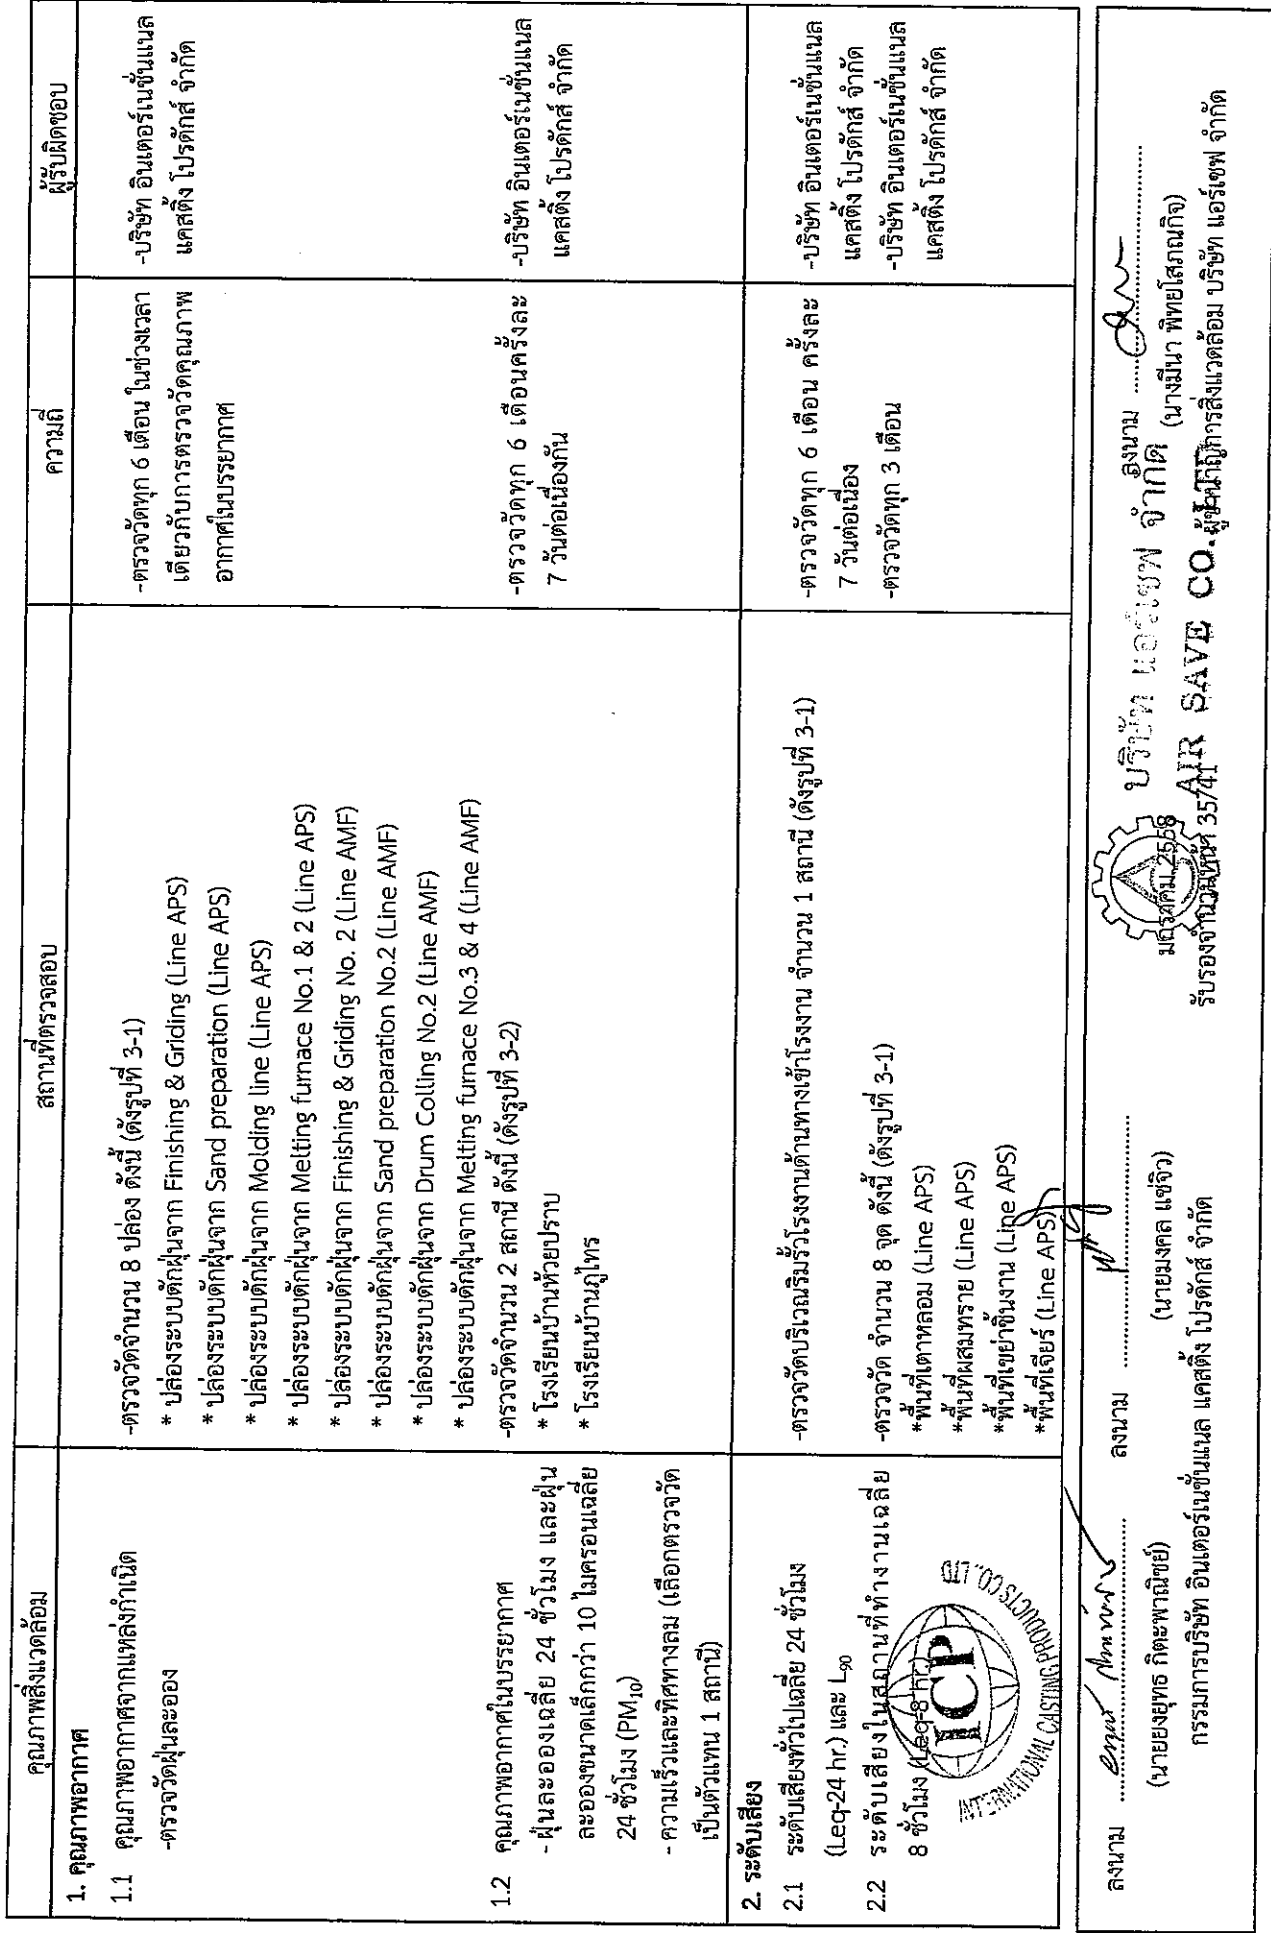 คุณภาพสิ่งแวดล้อม
สถานที่ตรวจสอบ
ความถี่
ผู้รับผิดชอบ
1. คุณภาพอากาศ
1.1 คุณภาพอากาศจากแหล่งกำเนิด
-ตรวจวัดฝุ่นละออง
-ตรวจวัดจำนวน 8 ปล่อง ดังนี้ (ดังรูปที่ 3-1)
* ปล่องระบบดักฝุ่นจาก Finishing & Griding (Line APS)
* ปล่องระบบดักฝุ่นจาก Sand preparation (Line APS)
* ปล่องระบบดักฝุ่นจาก Molding line (Line APS)
* ปล่องระบบดักฝุ่นจาก Melting furnace No.1 & 2 (Line APS)
* ปล่องระบบดักฝุ่นจาก Finishing & Griding No. 2 (Line AMF)
* ปล่องระบบดักฝุ่นจาก Sand preparation No.2 (Line AMF)
* ปล่องระบบดักฝุ่นจาก Drum Colling No.2 (Line AMF)
* ปล่องระบบดักฝุ่นจาก Melting furnace No.3 & 4 (Line AMF)
-ตรวจวัดทุก 6 เดือน ในช่วงเวลา
เดียวกับการตรวจวัดคุณภาพ
อากาศในบรรยากาศ
-บริษัท อินเตอร์เนชั่นแนล
แคสติ้ง โปรดักส์ จำกัด
1.2 คุณภาพอากาศในบรรยากาศ
- ฝุ่นละอองเฉลี่ย 24 ชั่วโมง และฝุ่น
ละอองขนาดเล็กกว่า 10 ไมครอนเฉลี่ย
24 ชั่วโมง (PM₁₀)
- ความเร็วและทิศทางลม (เลือกตรวจวัด
เป็นตัวแทน 1 สถานี)
-ตรวจวัดจำนวน 2 สถานี ดังนี้ (ดังรูปที่ 3-2)
* โรงเรียนบ้านห้วยปราบ
* โรงเรียนบ้านภูไทร
-ตรวจวัดทุก 6 เดือนครั้งละ
7 วันต่อเนื่องกัน
-บริษัท อินเตอร์เนชั่นแนล
แคสติ้ง โปรดักส์ จำกัด
2. ระดับเสียง
2.1 ระดับเสียงทั่วไปเฉลี่ย 24 ชั่วโมง
(Leq-24 hr.) และ L₉₀
-ตรวจวัดบริเวณริมรั้วโรงงานด้านทางเข้าโรงงาน จำนวน 1 สถานี (ดังรูปที่ 3-1)
-ตรวจวัดทุก 6 เดือน ครั้งละ
7 วันต่อเนื่อง
-บริษัท อินเตอร์เนชั่นแนล
แคสติ้ง โปรดักส์ จำกัด
2.2 ระดับเสียงในสถานที่ทำงานเฉลี่ย
8 ชั่วโมง (Leq-8 hr.)
-ตรวจวัด จำนวน 8 จุด ดังนี้ (ดังรูปที่ 3-1)
*พื้นที่เตาหลอม (Line APS)
*พื้นที่ผสมทราย (Line APS)
*พื้นที่เขย่าชิ้นงาน (Line APS)
*พื้นที่เจียร์ (Line APS)
-ตรวจวัดทุก 3 เดือน
-บริษัท อินเตอร์เนชั่นแนล
แคสติ้ง โปรดักส์ จำกัด
ICP
INTERNATIONAL CASTING PRODUCTS CO., LTD
ลงนาม
(นายยงยุทธ กิตะพาณิชย์)
ลงนาม
(นายมงคล แซ่จิว)
กรรมการบริษัท อินเตอร์เนชั่นแนล แคสติ้ง โปรดักส์ จำกัด
มกราคม 2558
รับรองจำนวนหน้า 35/41
บริษัท แอร์เซฟ จำกัด
AIR SAVE CO., LTD
ลงนาม
(นางมีนา พิทยโสภณกิจ)
ผู้ชำนาญการสิ่งแวดล้อม บริษัท แอร์เซฟ จำกัด